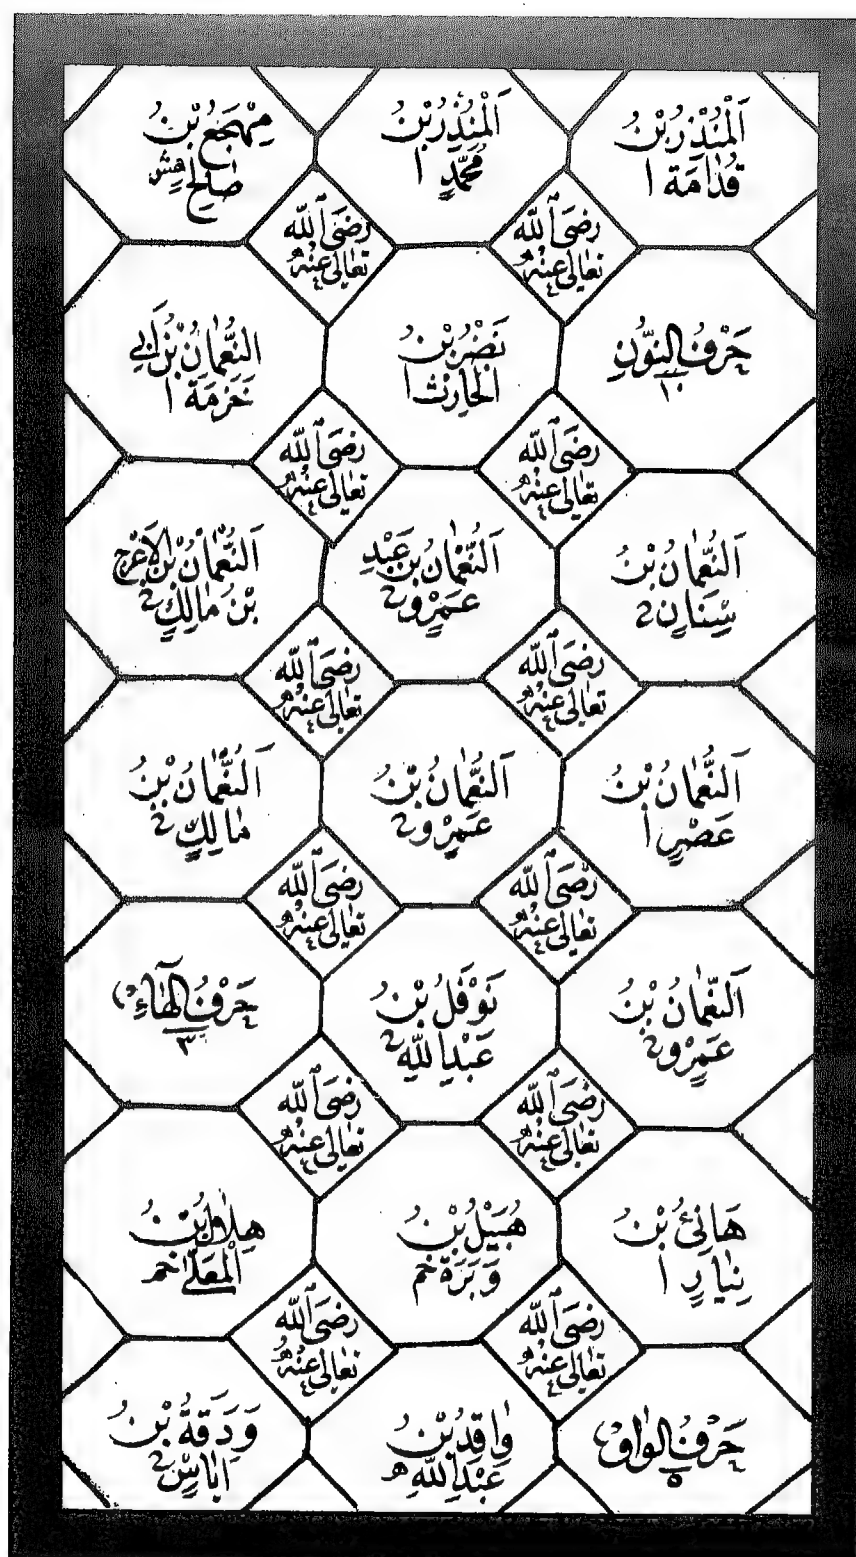 اَلْمُنْذِرُ بْنُ
قُدَامَةَ ا
اَلْمُنْذِرُ بْنُ
مُحَمَّدٍ ا
مِهْجَعُ بْنُ
صَالِحٍ هش
رَضِيَ اللّٰه
تَعَالٰى عَنْهُ
رَضِيَ اللّٰه
تَعَالٰى عَنْهُ
حَرْفُ النُّوْنِ
١٠
نَضْرُ بْنُ
الْحَارِثِ ا
اَلنُّعْمَانُ بْنُ اَبِي
خَزْمَةَ ا
رَضِيَ اللّٰه
تَعَالٰى عَنْهُ
رَضِيَ اللّٰه
تَعَالٰى عَنْهُ
اَلنُّعْمَانُ بْنُ
سِنَانٍ
اَلنُّعْمَانُ بْنُ عَبْدِ
عَمْرٍو
اَلنُّعْمَانُ بْنُ الْاَعْرَجِ
بْنُ مَالِكٍ
رَضِيَ اللّٰه
تَعَالٰى عَنْهُ
رَضِيَ اللّٰه
تَعَالٰى عَنْهُ
اَلنُّعْمَانُ بْنُ
عَصْرٍ ا
اَلنُّعْمَانُ بْنُ
عَمْرٍو
اَلنُّعْمَانُ بْنُ
مَالِكٍ
رَضِيَ اللّٰه
تَعَالٰى عَنْهُ
رَضِيَ اللّٰه
تَعَالٰى عَنْهُ
اَلنُّعْمَانُ بْنُ
عَمْرٍو
نَوْفَلُ بْنُ
عَبْدِ اللّٰهِ
حَرْفُ الْهَاءِ
٣
رَضِيَ اللّٰه
تَعَالٰى عَنْهُ
رَضِيَ اللّٰه
تَعَالٰى عَنْهُ
هَانِئُ بْنُ
نِيَارٍ ا
هُبَيْلُ بْنُ
وَبَرَةَ خم
هِلَالُ بْنُ
الْمُعَلّٰى خم
رَضِيَ اللّٰه
تَعَالٰى عَنْهُ
رَضِيَ اللّٰه
تَعَالٰى عَنْهُ
حَرْفُ الْوَاوِ
٥
وَاقِدُ بْنُ
عَبْدِ اللّٰهِ
وَدَقَةُ بْنُ
اِيَاسٍ